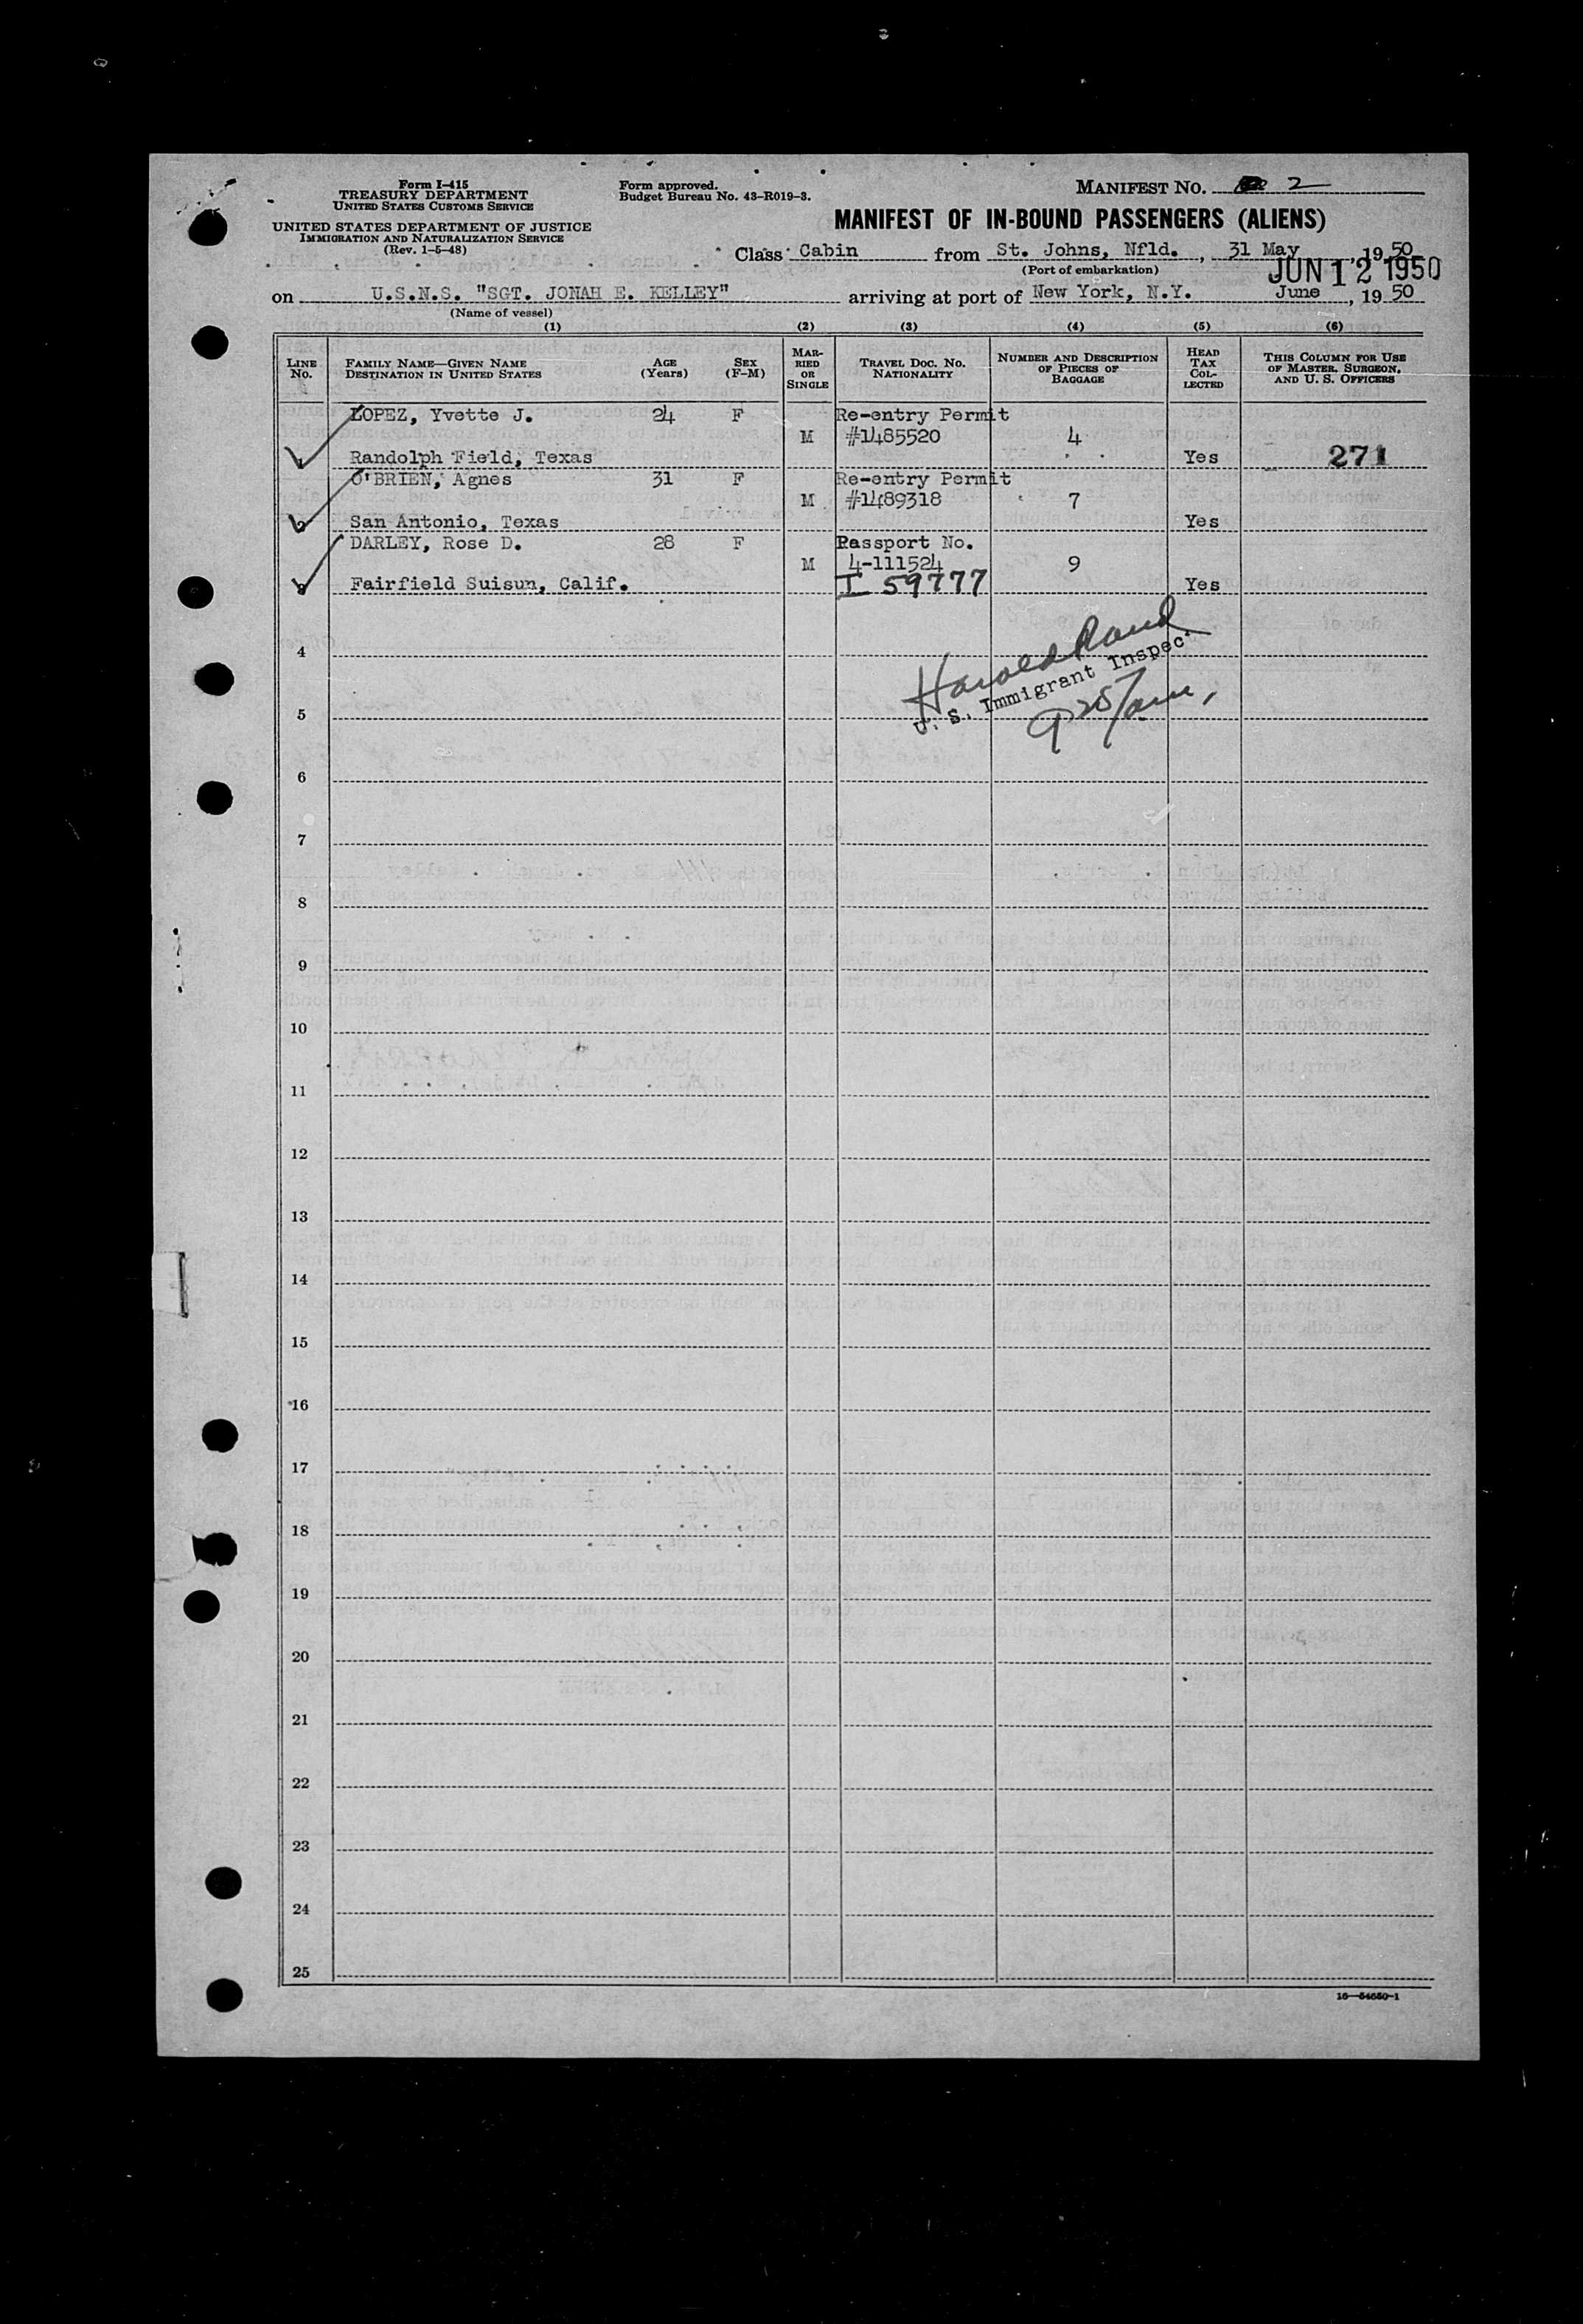 Form I-415
TREASURY DEPARTMENT
UNITED STATES CUSTOMS SERVICE
UNITED STATES DEPARTMENT OF JUSTICE
IMMIGRATION AND NATURALIZATION SERVICE
(Rev. 1-5-48)
Form approved.
Budget Bureau No. 43-R019-3.
MANIFEST NO. 2
MANIFEST OF IN-BOUND PASSENGERS (ALIENS)
Class Cabin from St. Johns, Nfld., 31 May, 1950
(Port of embarkation)
JUN 12 1950
on U.S.N.S. "SGT. JONAH E. KELLEY" arriving at port of New York, N.Y. June, 1950
(Name of vessel)
(1) (2) (3) (4) (5) (6)
LINE No. FAMILY NAME—GIVEN NAME DESTINATION IN UNITED STATES AGE (Years) SEX (F-M) MARRIED OR SINGLE TRAVEL DOC. NO. NATIONALITY NUMBER AND DESCRIPTION OF PIECES OF BAGGAGE HEAD TAX COLLECTED THIS COLUMN FOR USE OF MASTER, SURGEON, AND U. S. OFFICERS
LOPEZ, Yvette J. 24 F Re-entry Permit
M #1485520 4
1 Randolph Field, Texas Yes 271
O'BRIEN, Agnes 31 F Re-entry Permit
M #1489318 7
2 San Antonio, Texas Yes
DARLEY, Rose D. 28 F Passport No.
M 4-111524 9
3 Fairfield Suisun, Calif. I 59777 Yes
Harold Rand
U. S. Immigrant Inspec.
4
9 25/am.
5
6
7
8
9
10
11
12
13
14
15
16
17
18
19
20
21
22
23
24
25
16—54650-1